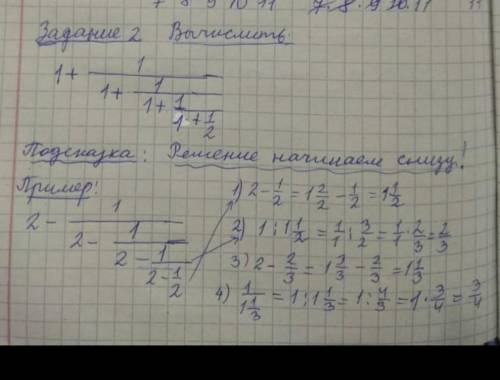 7 8 9 10 11 7. 8. 9. 10. 11 11
Задание 2 Вычислить:
1+ 1/(1+ 1/(1+ 1/(1+ 1/2)))
Подсказка: Решение начинаем снизу!
Пример:
2- 1/(2- 1/(2- 1/(2- 1/2)))
1) 2 - 1/2 = 1 2/2 - 1/2 = 1 1/2
2) 1 : 1 1/2 = 1/1 : 3/2 = 1/1 · 2/3 = 2/3
3) 2 - 2/3 = 1 3/3 - 2/3 = 1 1/3
4) 1/(1 1/3) = 1 : 1 1/3 = 1 : 4/3 = 1 · 3/4 = 3/4